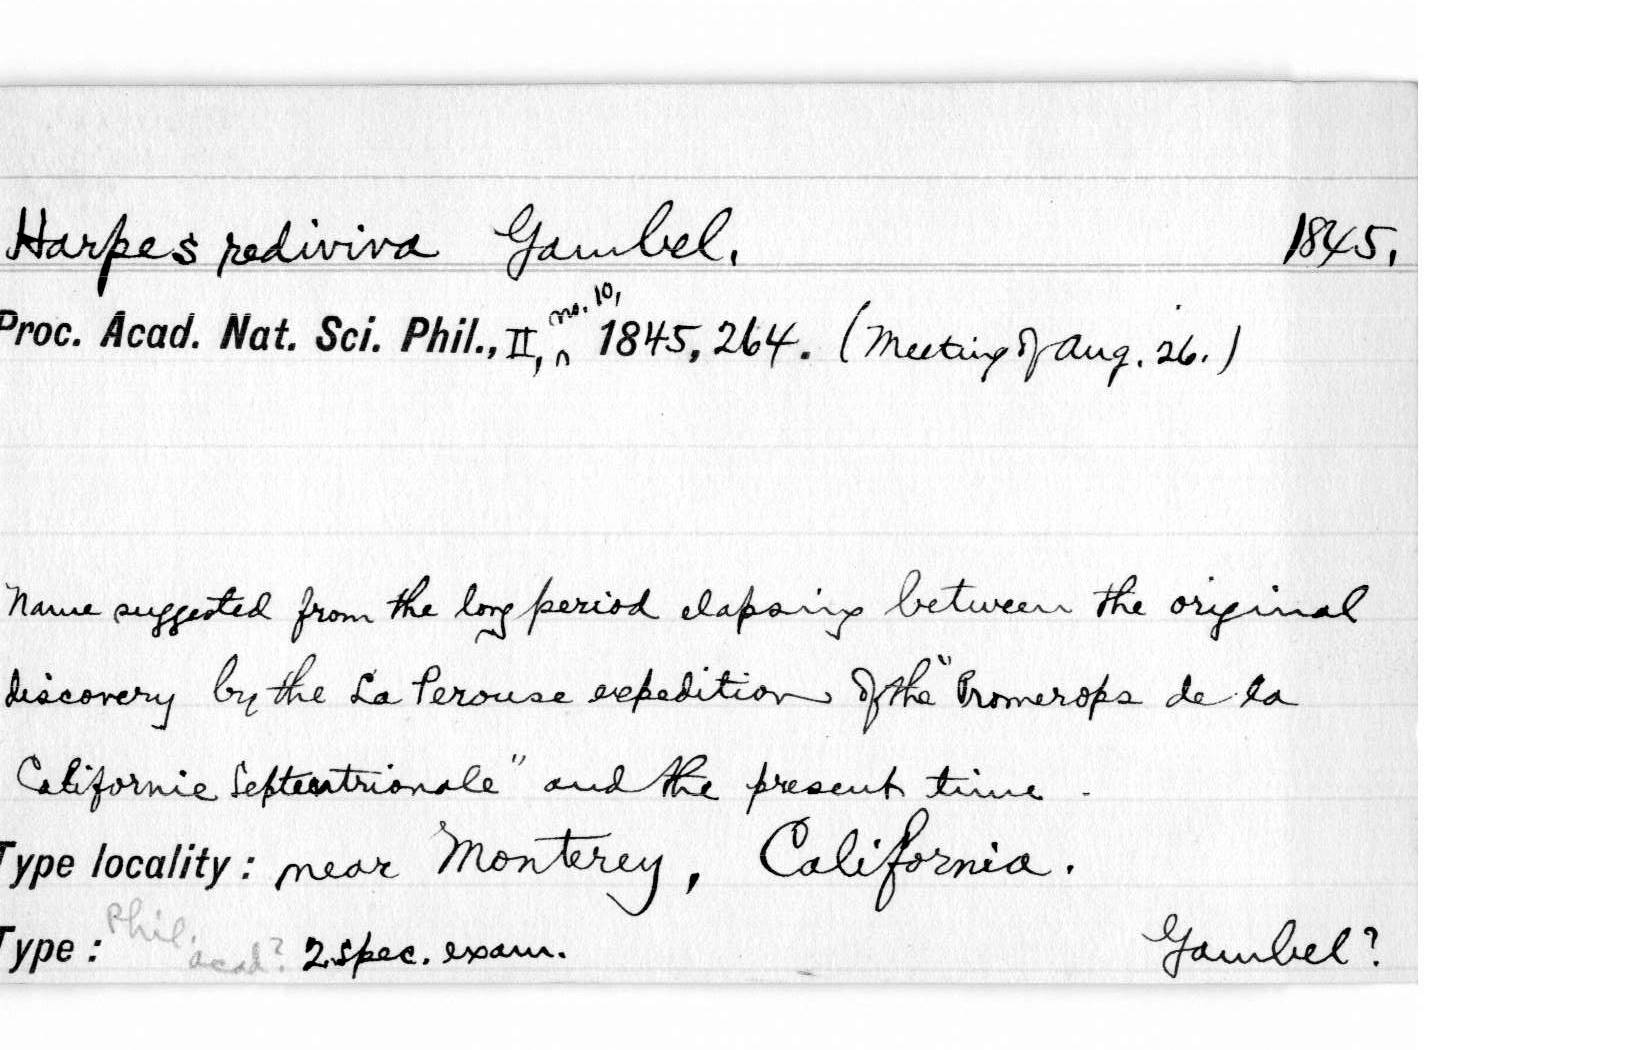 Harpes rediviva Gambel. 1845.
Proc. Acad. Nat. Sci. Phil., II, no. 10, 1845, 264. (Meeting of Aug. 26.)
Name suggested from the long period elapsing between the original
discovery by the La Perouse expedition of the "Promerops de la
Californie Septentrionale" and the present time.
Type locality: near Monterey, California.
Type: Phil. acad? 2 spec. exam. Gambel?